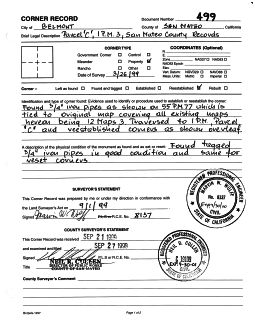 CORNER RECORD
Document Number 499
City of BELMONT County of SAN MATEO California
Brief Legal Description Parcel "C", 1 P.M. 3, San Mateo County Records
CORNER TYPE
COORDINATES (Optional)
Government Corner Control
Meander Property
Rancho Other
Date of Survey 3/26/99
N.
E.
Zone NAD27 NAD83
NAD83 Epoch
Elev.
Vert. Datum: NGVD29 NAVD88
Meas. Units: Metric Imperial
Corner - Left as found Found and tagged Established Reestablished Rebuilt
Identification and type of corner found: Evidence used to identify or procedure used to establish or reestablish the corner:
Found 3/4" iron pipes as shown on 55 PM 77 which is
tied to original map covering all existing maps
hereon being 12 Maps 3. Traversed to 1 P.M. 3 Parcel
"C" and reestablished corners as shown overleaf.
A description of the physical condition of the monument as found and as set or reset: Found tagged
3/4" iron pipes in good condition and same for
reset corners
SURVEYOR'S STATEMENT
This Corner Record was prepared by me or under my direction in conformance with
the Land Surveyors' Act on 9/1/99
Signed P.L.S. or R.C.E. No. 8137
COUNTY SURVEYOR'S STATEMENT
This Corner Record was received SEP 21 1999
and examined and filed SEP 27 1999
Signed
NEIL R. CULLEN
COUNTY OF SAN MATEO
County Surveyor's Comment
Page 1 of 2